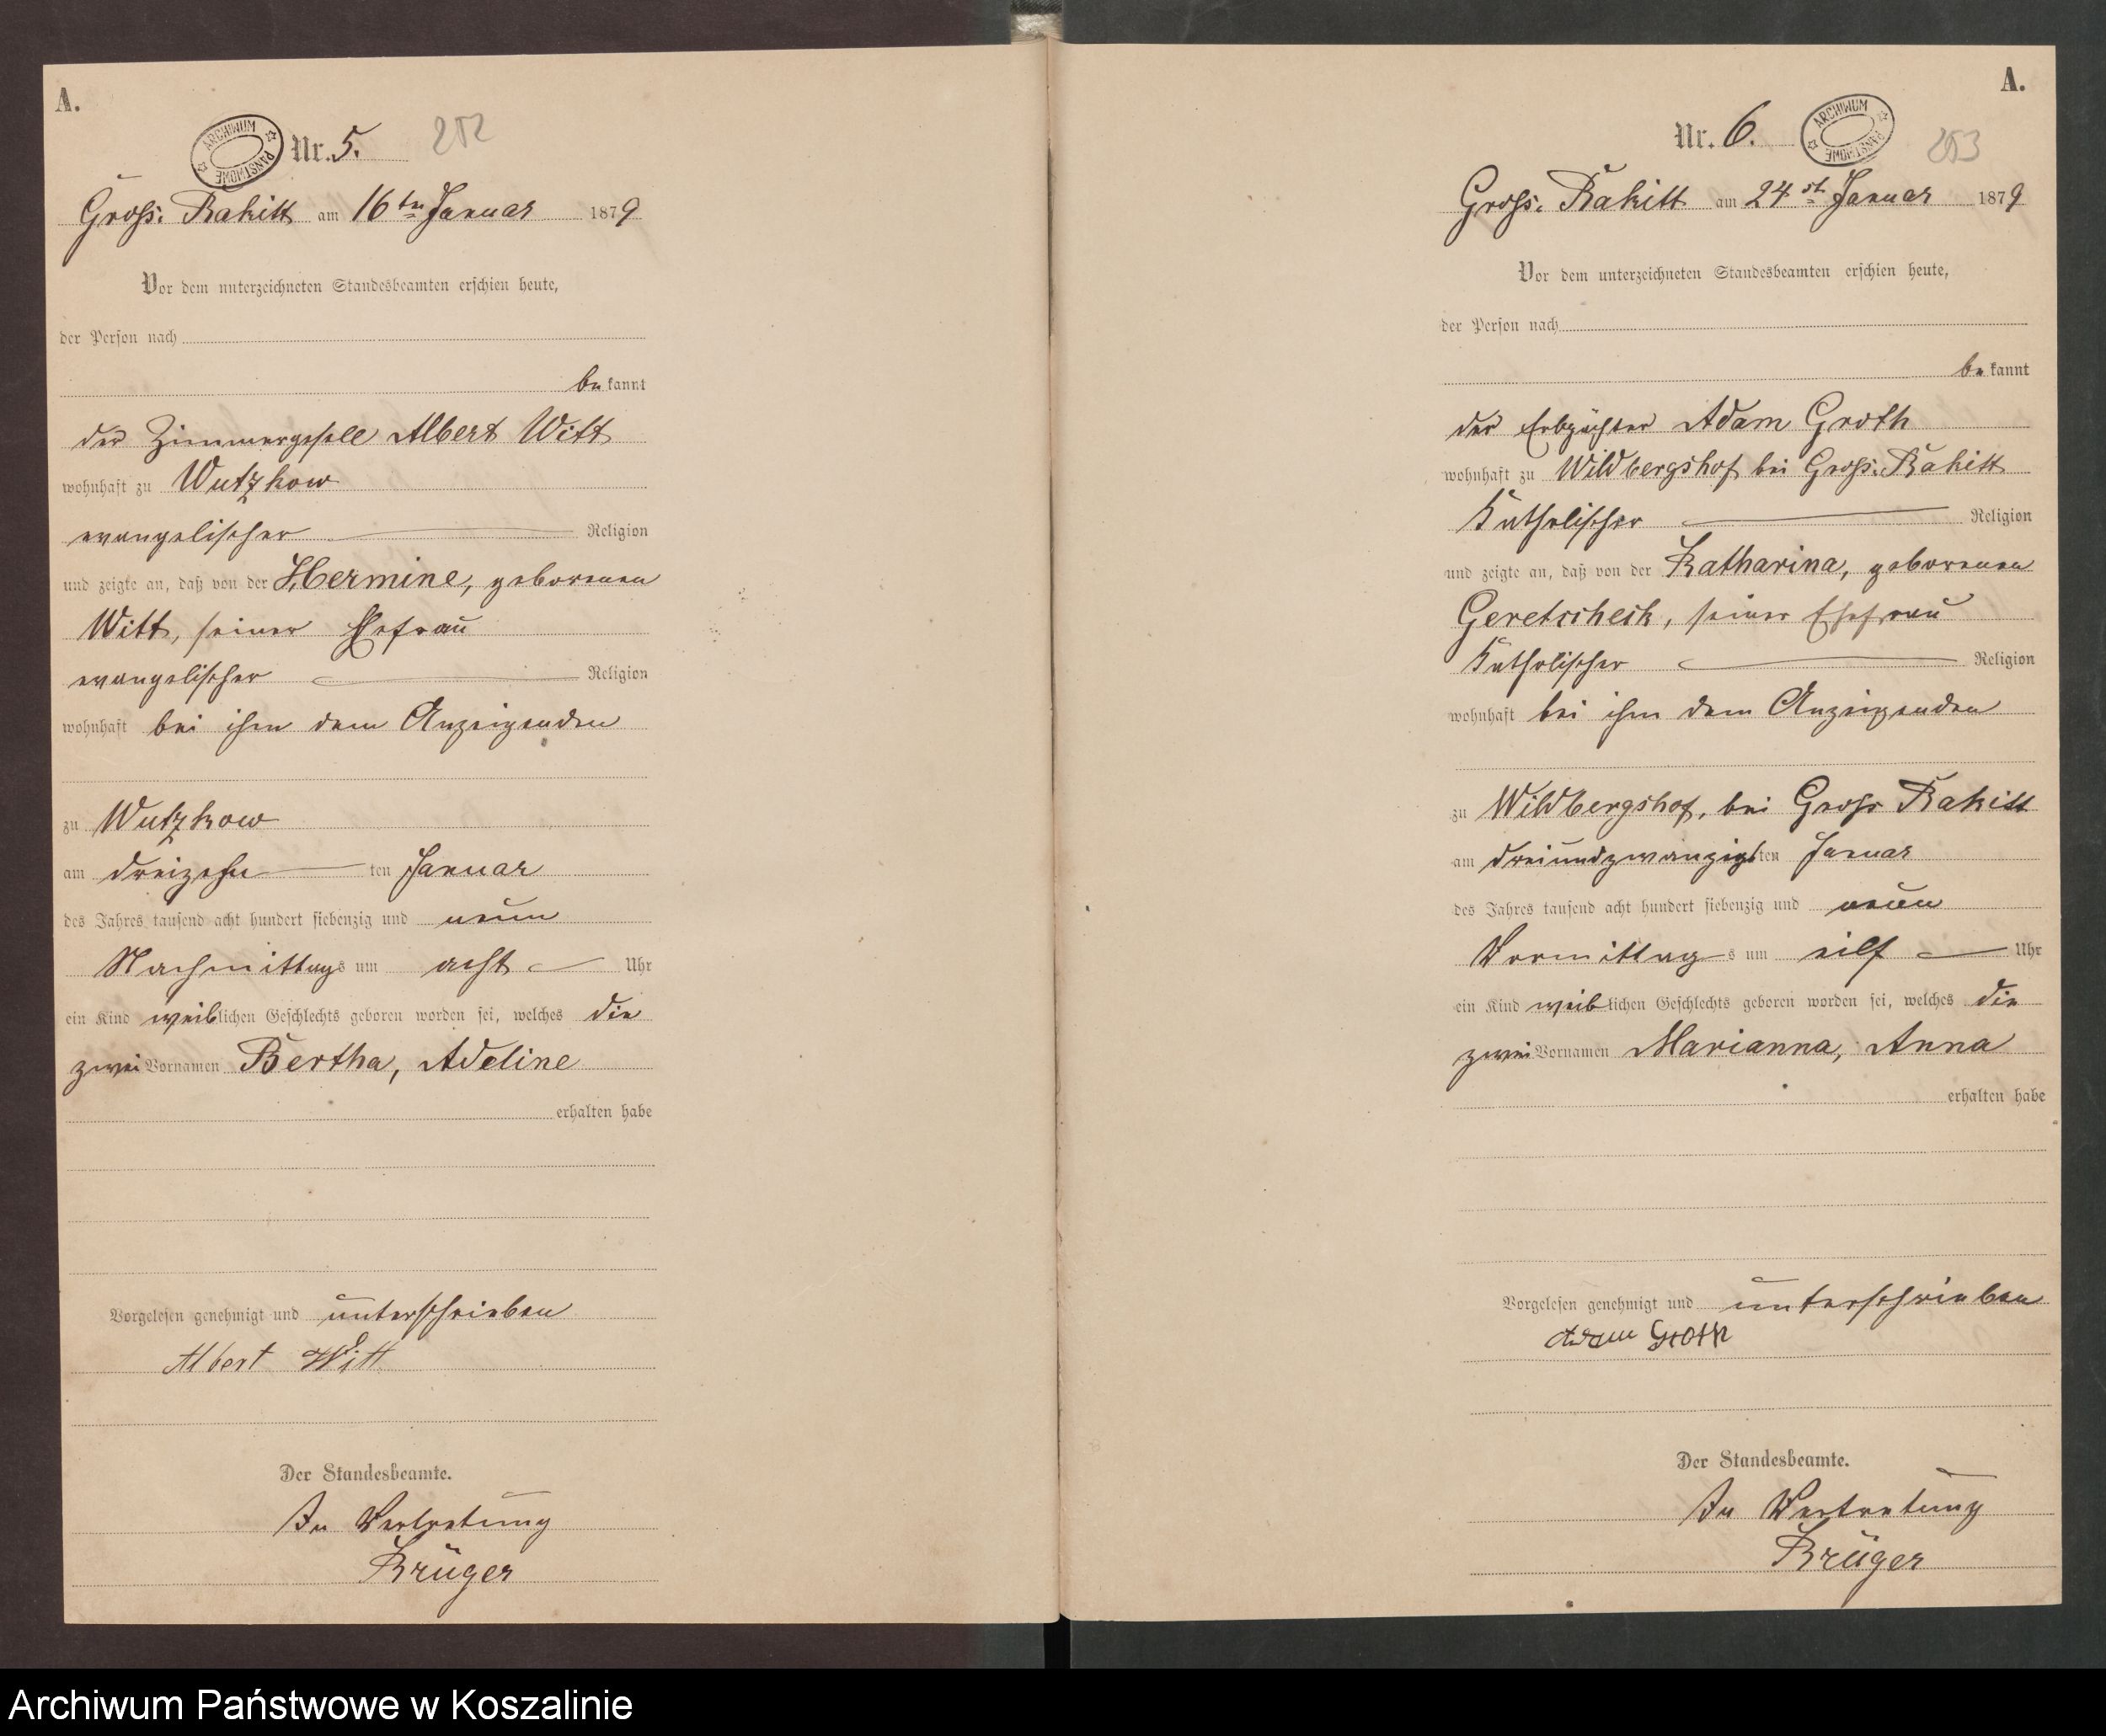 A.
ARCHIWUM PAŃSTWOWE
Nr. 5.
252
Groß. Rakitt am 16ten Januar 1879
Vor dem unterzeichneten Standesbeamten erschien heute,
der Person nach
bekannt
der Zimmergeselle Albert Witt
wohnhaft zu Wutzkow
evangelischer Religion
und zeigte an, daß von der Hermine, geborenen
Witt, seiner Ehefrau
evangelischer Religion
wohnhaft bei ihm dem Anzeigenden
zu Wutzkow
am dreizehn ten Januar
des Jahres tausend acht hundert siebenzig und neun
Nachmittags um acht Uhr
ein Kind weiblichen Geschlechts geboren worden sei, welches die
zwei Vornamen Bertha, Adeline
erhalten habe
Vorgelesen genehmigt und unterschrieben
Albert Witt
Der Standesbeamte.
In Vertretung
Krüger
A.
Nr. 6.
ARCHIWUM PAŃSTWOWE
253
Groß. Rakitt am 24st Januar 1879
Vor dem unterzeichneten Standesbeamten erschien heute,
der Person nach
bekannt
der Erbpächter Adam Groth
wohnhaft zu Wildbergshof bei Groß. Rakitt
Katholischer Religion
und zeigte an, daß von der Katharina, geborenen
Geretscheck, seiner Ehefrau
Katholischer Religion
wohnhaft bei ihm dem Anzeigenden
zu Wildbergshof, bei Groß Rakitt
am dreiundzwanzigsten Januar
des Jahres tausend acht hundert siebenzig und neun
Vormittags um eilf Uhr
ein Kind weiblichen Geschlechts geboren worden sei, welches die
zwei Vornamen Marianna, Anna
erhalten habe
Vorgelesen genehmigt und unterschrieben
Adam Groth
Der Standesbeamte.
In Vertretung
Krüger
Archiwum Państwowe w Koszalinie